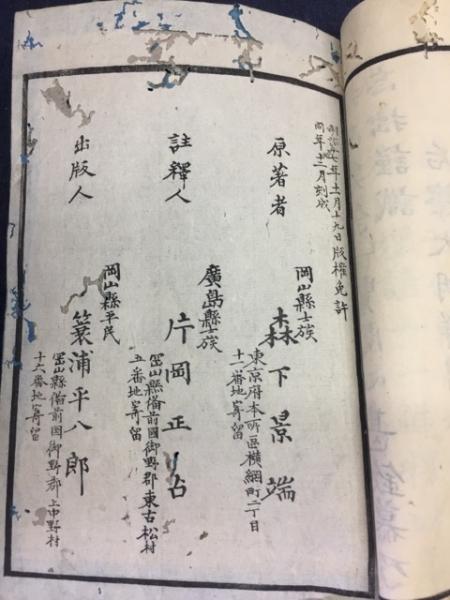 明治十七年十一月十九日版權免許
同年十二月刻成
原著者
岡山縣士族
森下景端
東京府本所区横網町二丁目
十一番地寄留
註釋人
廣島縣士族
片岡正占
岡山縣備前國御野郡東古松村
五番地寄留
出版人
岡山縣平民
簑浦平八郎
岡山縣備前国御野郡上中野村
十六番地寄留